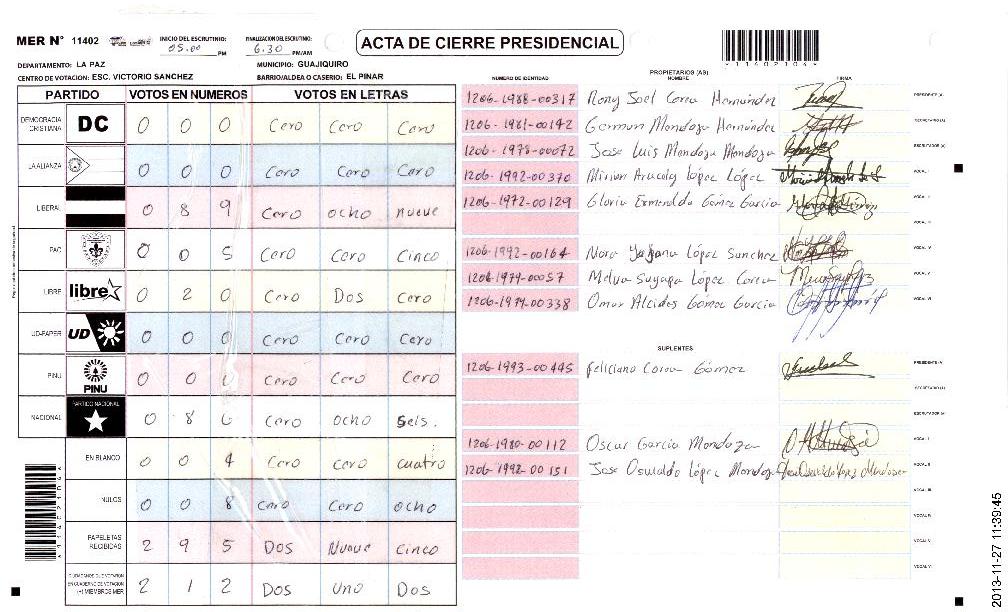 MER N° 11402
INICIO DEL ESCRUTINIO: 05.00 PM
FINALIZACION DEL ESCRUTINIO: 6.30 PM/AM
ACTA DE CIERRE PRESIDENCIAL
*1140210*
DEPARTAMENTO: LA PAZ
MUNICIPIO: GUAJIQUIRO
CENTRO DE VOTACION: ESC. VICTORIO SANCHEZ
BARRIO/ALDEA O CASERIO: EL PINAR
PARTIDO VOTOS EN NUMEROS VOTOS EN LETRAS
DEMOCRACIA CRISTIANA DC 0 0 0 Cero Cero Cero
LA ALIANZA 0 0 0 Cero Cero Cero
LIBERAL 0 8 9 Cero ocho nueve
PAC 0 0 5 Cero Cero Cinco
LIBRE libre 0 2 0 Cero Dos Cero
UD-FAPER UD 0 0 0 Cero Cero Cero
PINU PINU 0 0 0 Cero Cero Cero
NACIONAL PARTIDO NACIONAL 0 8 6 Cero ocho Seis.
EN BLANCO 0 0 4 Cero Cero cuatro
NULOS 0 0 8 Cero Cero ocho
PAPELETAS RECIBIDAS 2 9 5 Dos Nueve Cinco
CIUDADANOS QUE VOTARON EN CUADERNO DE VOTACION (+) MIEMBROS MER 2 1 2 Dos Uno Dos
NUMERO DE IDENTIDAD PROPIETARIOS (AS) NOMBRE FIRMA
1206-1988-00317 Rony Joel Corea Hernández PRESIDENTE (A)
1206-1981-00142 German Mendoza Hernández SECRETARIO (A)
1206-1978-00072 Jose Luis Mendoza Mendoza ESCRUTADOR (A)
1206-1992-00370 Mirian Aracely lopez López VOCAL I
1206-1972-00129 Gloria Esmeralda Gómez García VOCAL II
VOCAL III
1206-1992-00164 Nora López Sanchez VOCAL IV
1206-1979-00057 Melva Suyapa López Corea VOCAL V
1206-1979-00338 Omar Alcides Gomez Garcia VOCAL VI
SUPLENTES
1206-1993-00445 Feliciano Corea Gómez PRESIDENTE (A)
SECRETARIO (A)
ESCRUTADOR (A)
1206-1980-00112 Oscar Garcia Mendoza VOCAL I
1206-1992-00151 Jose Oswaldo López Mendoza VOCAL II
VOCAL III
VOCAL IV
VOCAL V
VOCAL VI
2013-11-27 11:39:45